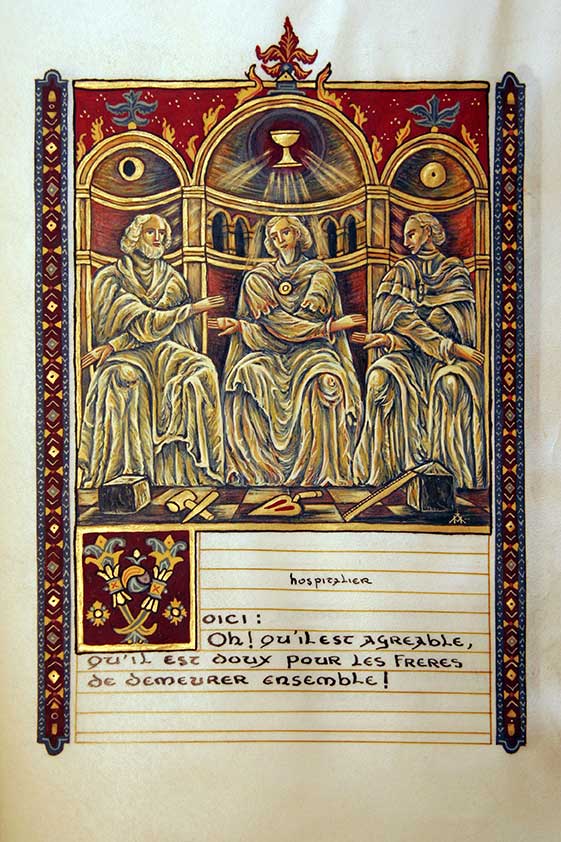 hospitalier
Voici :
Oh! Qu'il est agreable,
qu'il est doux pour les freres
de demeurer ensemble!